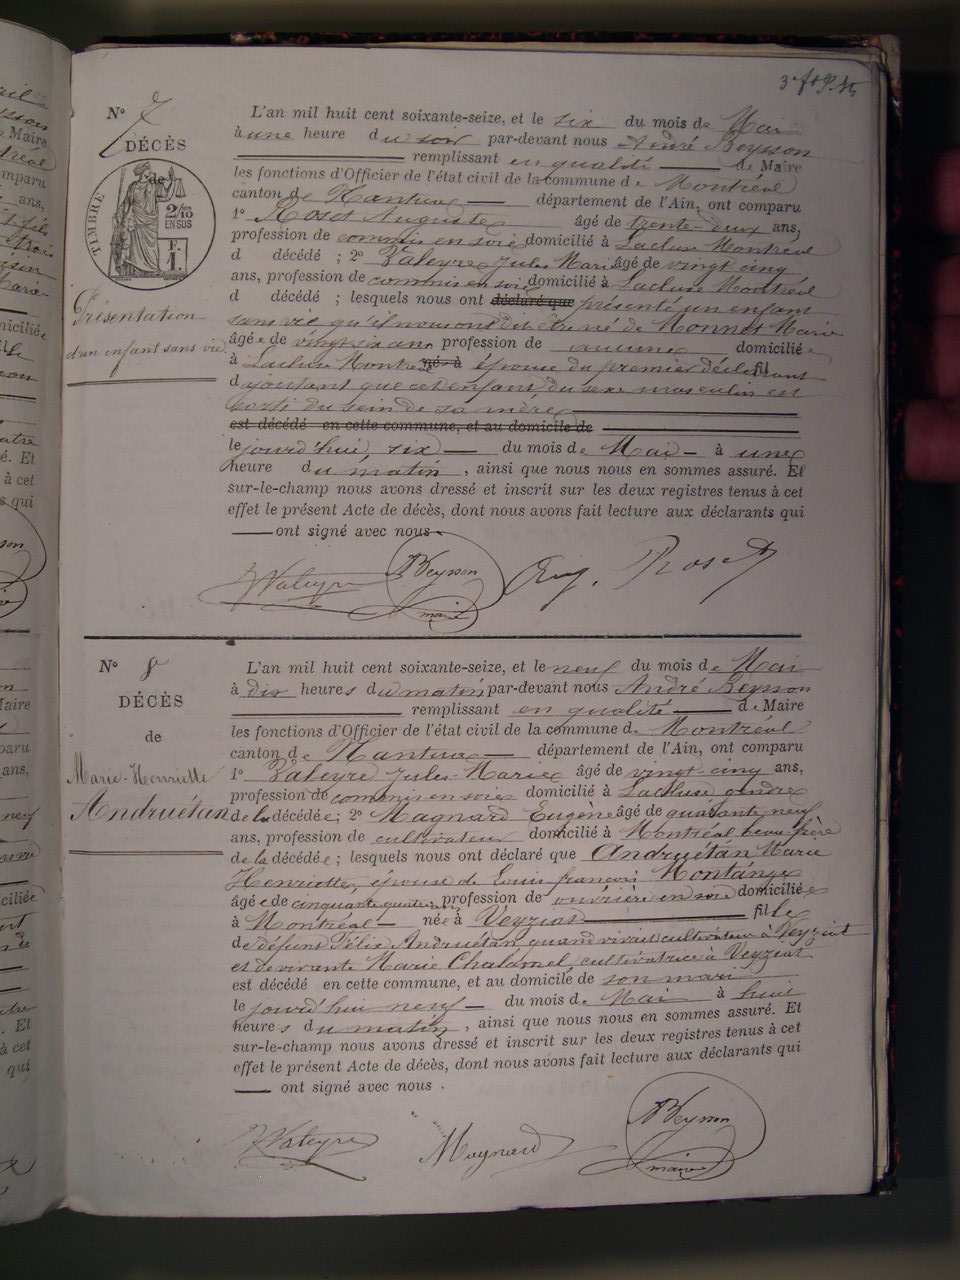 N° 7
DÉCÈS
de
TIMBRE
2 fr 2/10
EN SUS
Présentation
d'un enfant sans vie
L'an mil huit cent soixante-seize, et le six du mois de Mai
à une heure du soir par-devant nous André Beysson
remplissant en qualité de Maire
les fonctions d'Officier de l'état civil de la commune de Montréal
canton de Nantua département de l'Ain, ont comparu
1° Roset Auguste âgé de trente-deux ans,
profession de commis en soie domicilié à Lacluse Montréal
d décédé ; 2° Valeyre Jules Marie âgé de vingt cinq
ans, profession de commis en soie domicilié à Lacluse Montréal
d décédé ; lesquels nous ont déclaré que présenté un enfant
sans vie qu'il nous ont dit être né de Monnet Marie
âgée de vingt six ans profession de aucune domiciliée
à Lacluse Montréal né à épouse du premier déclarant fil
d ajoutant que cet enfant du sexe masculin est
sorti du sein de sa mère
est décédé en cette commune, et au domicile de
le jourd'hui six du mois de Mai à une
heure du matin, ainsi que nous nous en sommes assuré. Et
sur-le-champ nous avons dressé et inscrit sur les deux registres tenus à cet
effet le présent Acte de décès, dont nous avons fait lecture aux déclarants qui
ont signé avec nous
JValeyre ABeysson Aug. Roset
maire
N° 8
DÉCÈS
de
Marie-Henriette
Andruétan
L'an mil huit cent soixante-seize, et le neuf du mois de Mai
à dix heures du matin par-devant nous André Beysson
remplissant en qualité de Maire
les fonctions d'Officier de l'état civil de la commune de Montréal
canton de Nantua département de l'Ain, ont comparu
1° Valeyre Jules-Marie âgé de vingt-cinq ans,
profession de commis en soie domicilié à Lacluse gendre
de la décédée ; 2° Magnard Eugène âgé de quarante neuf
ans, profession de cultivateur domicilié à Montréal beau frère
de la décédée ; lesquels nous ont déclaré que Andruétan Marie
Henriette, épouse de Louis françois Montange
âgée de cinquante quatre ans profession de ouvrière en soie domiciliée
à Montréal née à Veyziat fille
de défunt Félix Andruétan quand vivait cultivateur à Veyziat
et de vivante Marie Chalamel, cultivatrice à Veyziat
est décédé en cette commune, et au domicile de son mari
le jourd'hui neuf du mois de Mai à huit
heures du matin, ainsi que nous nous en sommes assuré. Et
sur-le-champ nous avons dressé et inscrit sur les deux registres tenus à cet
effet le présent Acte de décès, dont nous avons fait lecture aux déclarants qui
ont signé avec nous .
JValeyre Magnard ABeysson
maire